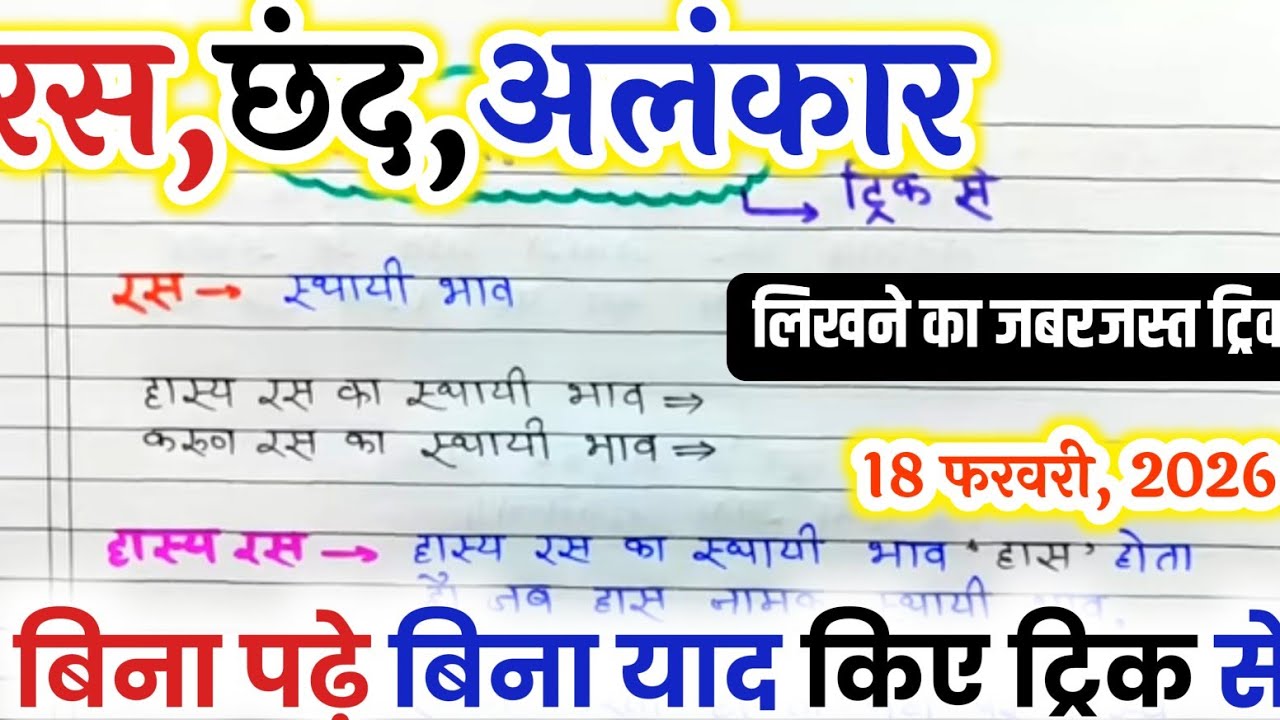 रस,छंद,अलंकार
ट्रिक से
रस→ स्थायी भाव
लिखने का जबरजस्त ट्रिक
हास्य रस का स्थायी भाव ⇒
करुण रस का स्थायी भाव ⇒
18 फरवरी, 2026
हास्य रस → हास्य रस का स्थायी भाव 'हास' होता
है। जब हास नामक स्थायी
बिना पढ़े बिना याद किए ट्रिक से